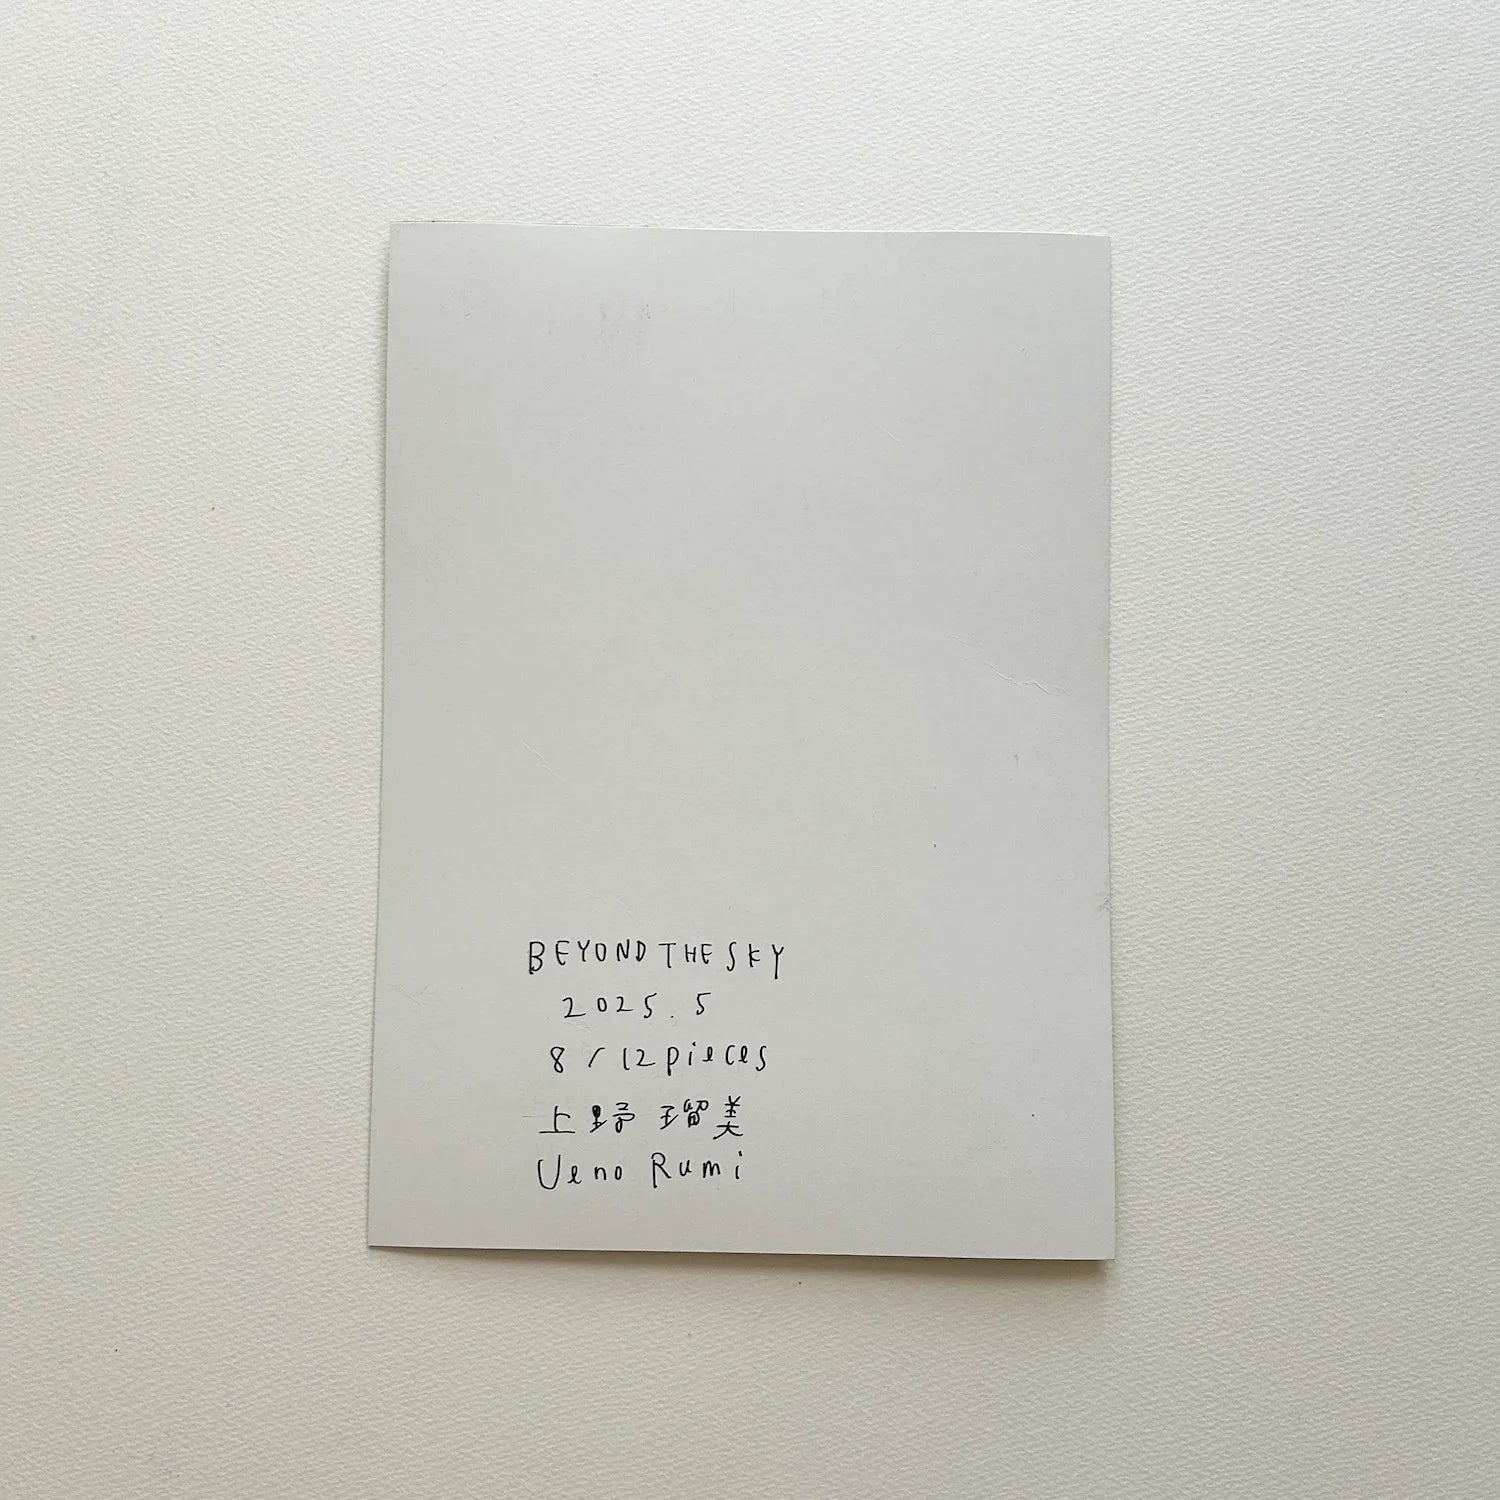 BEYOND THE SKY
2025.5
8/12pieces
上野 瑠美
Ueno Rumi